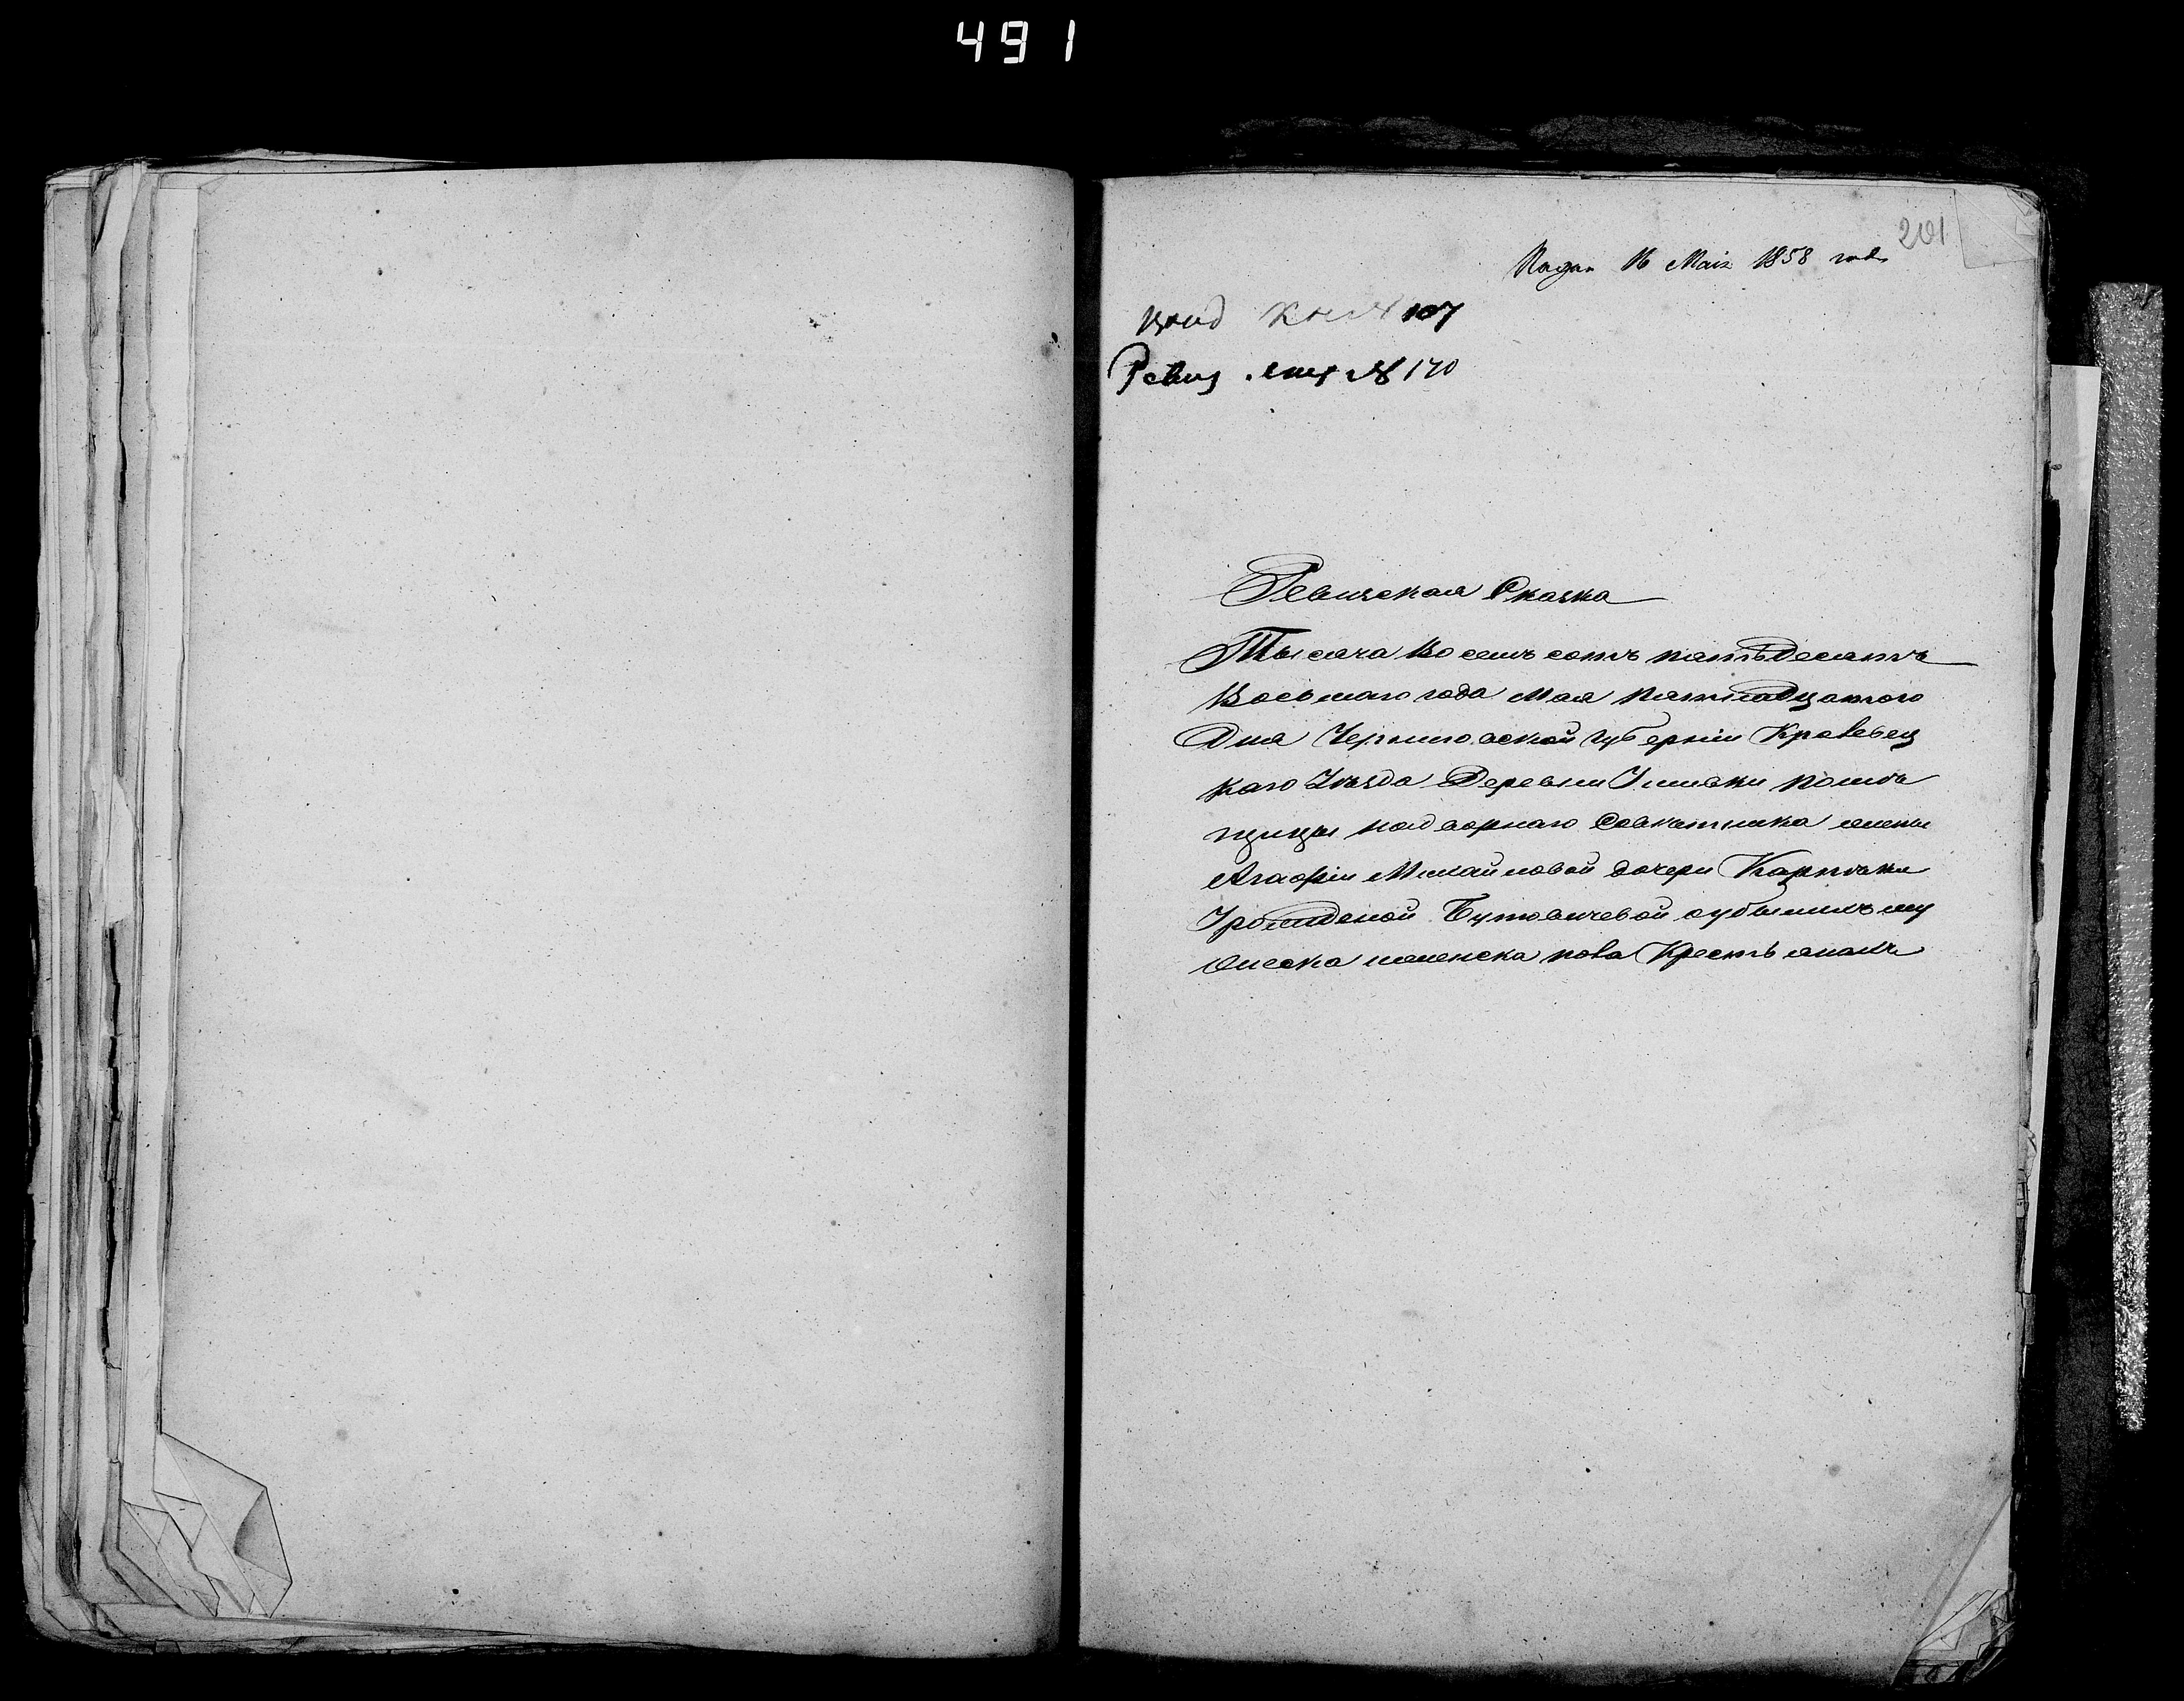 491
201
Подан 16 Мая 1858 года
Вход 107
Ревиз № 170
Ревизская Сказка
Тысяча Восемь сотъ пятьдесятъ
Восьмаго года Мая Пятнадцатого
Дня Черниговской губерніи Кролевец
каго Уѣзда Деревни помѣ
щицы надворнаго Совѣтника жены
Агафіи Михайловой дочери Карпѣки
Урожденой Бутовичевой
мужеска и женска пола Крестьянахъ